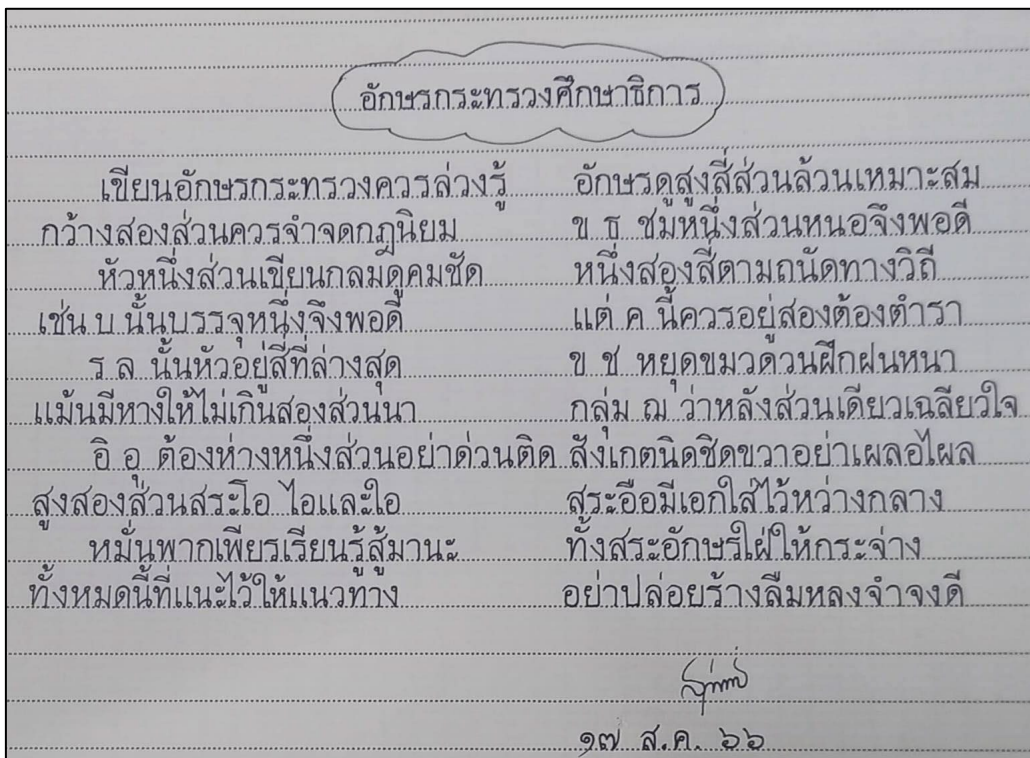 อักษรกระทรวงศึกษาธิการ
เขียนอักษรกระทรวงควรล่วงรู้ อักษรดูสูงสี่ส่วนล้วนเหมาะสม
กว้างสองส่วนควรจำจดกฎนิยม ข ธ ชมหนึ่งส่วนหนอจึงพอดี
หัวหนึ่งส่วนเขียนกลมดูคมชัด หนึ่งสองสี่ตามถนัดทางวิถี
เช่น บ นั้นบรรจุหนึ่งจึงพอดี แต่ ค นี้ควรอยู่สองต้องตำรา
ร ล นั้นหัวอยู่สี่ที่ล่างสุด ข ช หยุดขมวดวนฝึกฝนหนา
แม้นมีหางให้ไม่เกินสองส่วนนา กลุ่ม ฌ ว่าหลังส่วนเดียวเฉลียวใจ
อิ อุ ต้องห่างหนึ่งส่วนอย่าด่วนติด สังเกตนิดชิดขวาอย่าเผลอไผล
สูงสองส่วนสระโอ ไอและใอ สระอือมีเอกใส่ไว้หว่างกลาง
หมั่นพากเพียรเรียนรู้สู้มานะ ทั้งสระอักษรใฝ่ให้กระจ่าง
ทั้งหมดนี้ที่แนะไว้ให้แนวทาง อย่าปล่อยร้างลืมหลงจำจงดี
๑๗ ส.ค. ๖๖